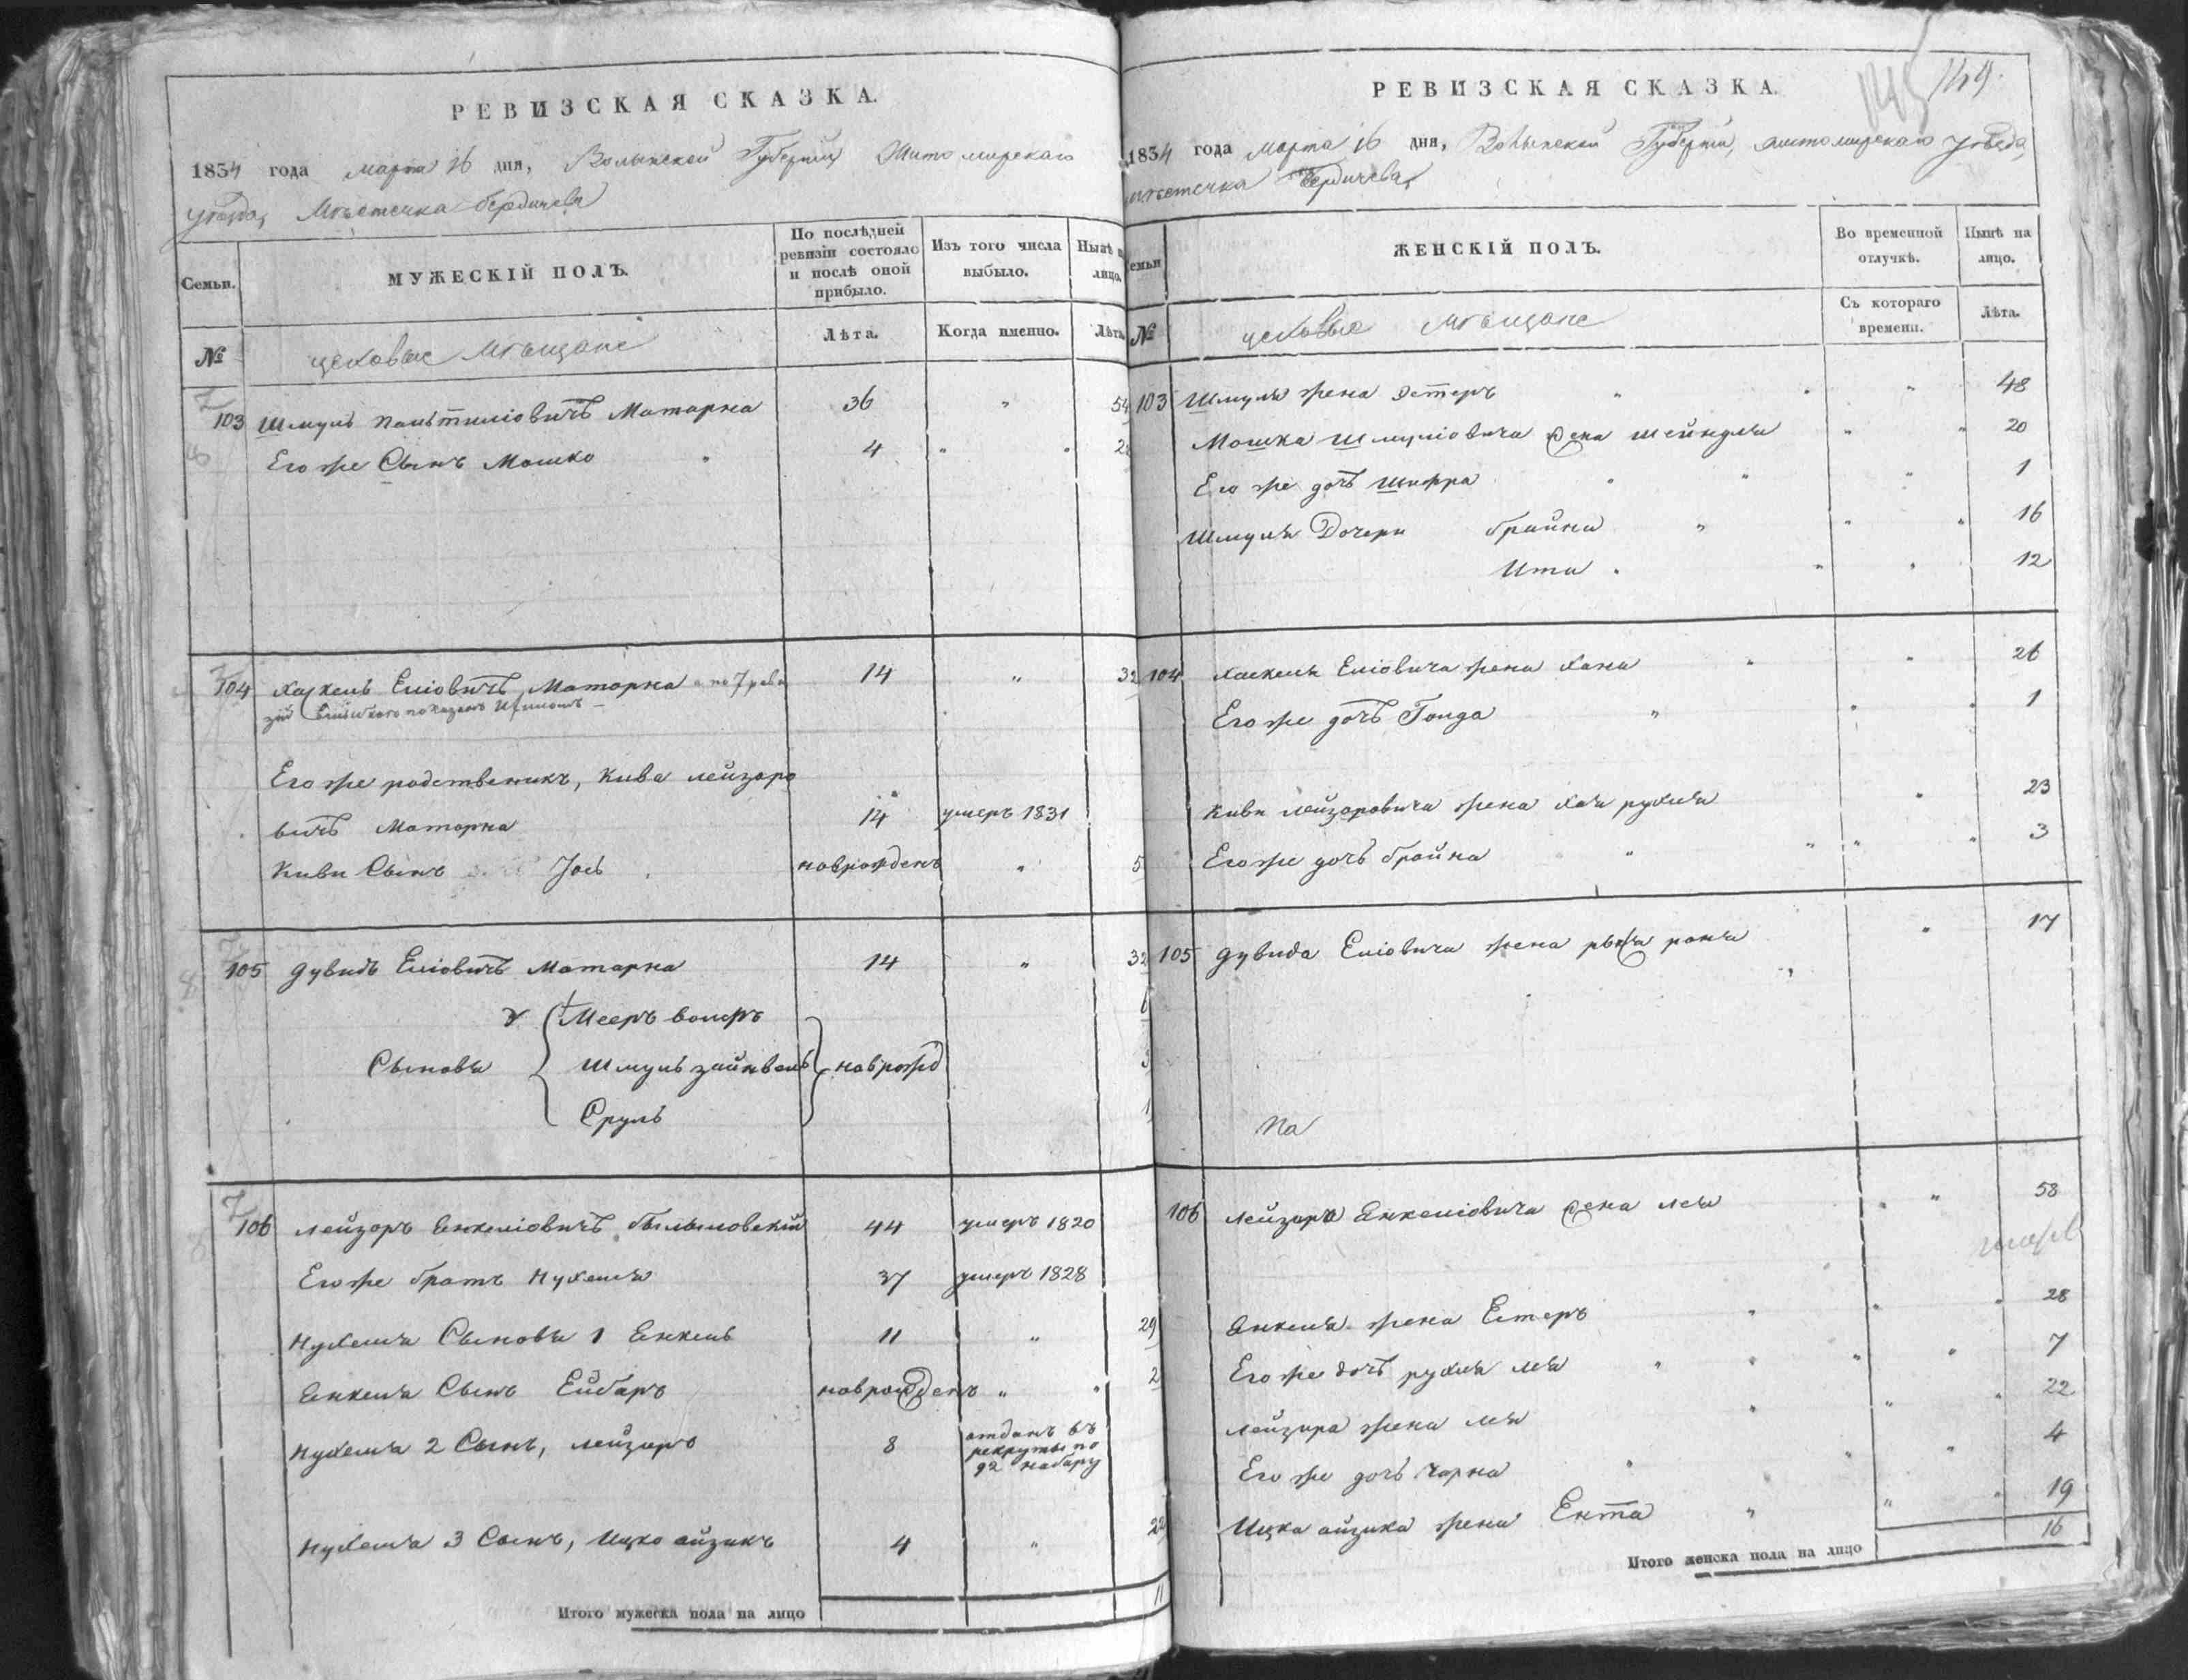 РЕВИЗСКАЯ СКАЗКА.
1834 года марта 16 дня, Волынской Губернии Житомирскаго
уезда, Мѣстечка Бердичева
Семьи.
МУЖЕСКІЙ ПОЛЪ.
По послѣдней ревизіи состояло и послѣ оной прибыло.
Изъ того числа выбыло.
Нынѣ на лицо.
№
цеховые Мѣщане
Лѣта.
Когда именно.
Лѣта.
103 Шмуль Маторна 36 " 54
Его же Сынъ Мошко " 4 " " 2
104 Хаскель Еліовичъ Маторна а по 7 реви 14 " 32
зіи показанъ
Его же родственикъ, Кива Лейзоро
вичъ Маторна 14 умеръ 1831
Киви Сынъ Іось новрожденъ " 5
105 Дувидъ Еліовичъ Маторна 14 " 32
Мееръ 6
Сыновья Шмуль Зайнвель новрожд 3
Сруль 1
106 Лейзоръ Янкеліовичъ 44 умеръ 1820
Его же братъ Нухемъ 37 умеръ 1828
Нухема Сыновья 1 Янкель 11 " 29
Янкеля Сынъ новрожденъ " " 2
Нухема 2 Сынъ, Лейзоръ 8 отданъ въ
рекруты по
92 набору
Нухема 3 Сынъ, Ицко Айзикъ 4 " 22
Итого мужеска пола на лицо 11
149.
РЕВИЗСКАЯ СКАЗКА.
1834 года марта 16 дня, Волынской Губерніи, Житомирскаго уѣзда,
мѣстечка Бердичева
Семьи
ЖЕНСКІЙ ПОЛЪ.
Во временной отлучкѣ.
Нынѣ на лицо.
№
цеховые мѣщане
Съ котораго времени.
Лѣта.
103 Шмуля жена Эстеръ " " " 48
Мошка Шмуліовича жена Шейндля " " 20
Его же дочь Шифра " " " 1
Шмуля Дочери Брайна " " " 16
Ита " " " 12
104 Хаскеля Еліовича жена Хана " " 26
Его же дочь Голда " " " 1
Киви Лейзоровича жена Хая Рухля " 23
Его же дочь Брайна " " " " 3
105 Дувида Еліовича жена " 17
106 Лейзора Янкеліовича жена Лея " " 58
Янкеля жена Естеръ " " " 28
Его же дочь Рухля Лея " " " " 7
Лейзора жена Лея " " " 22
Его же дочь Чарна " " " 4
Ицка Айзика жена Ента " " " 19
Итого женска пола на лицо 16